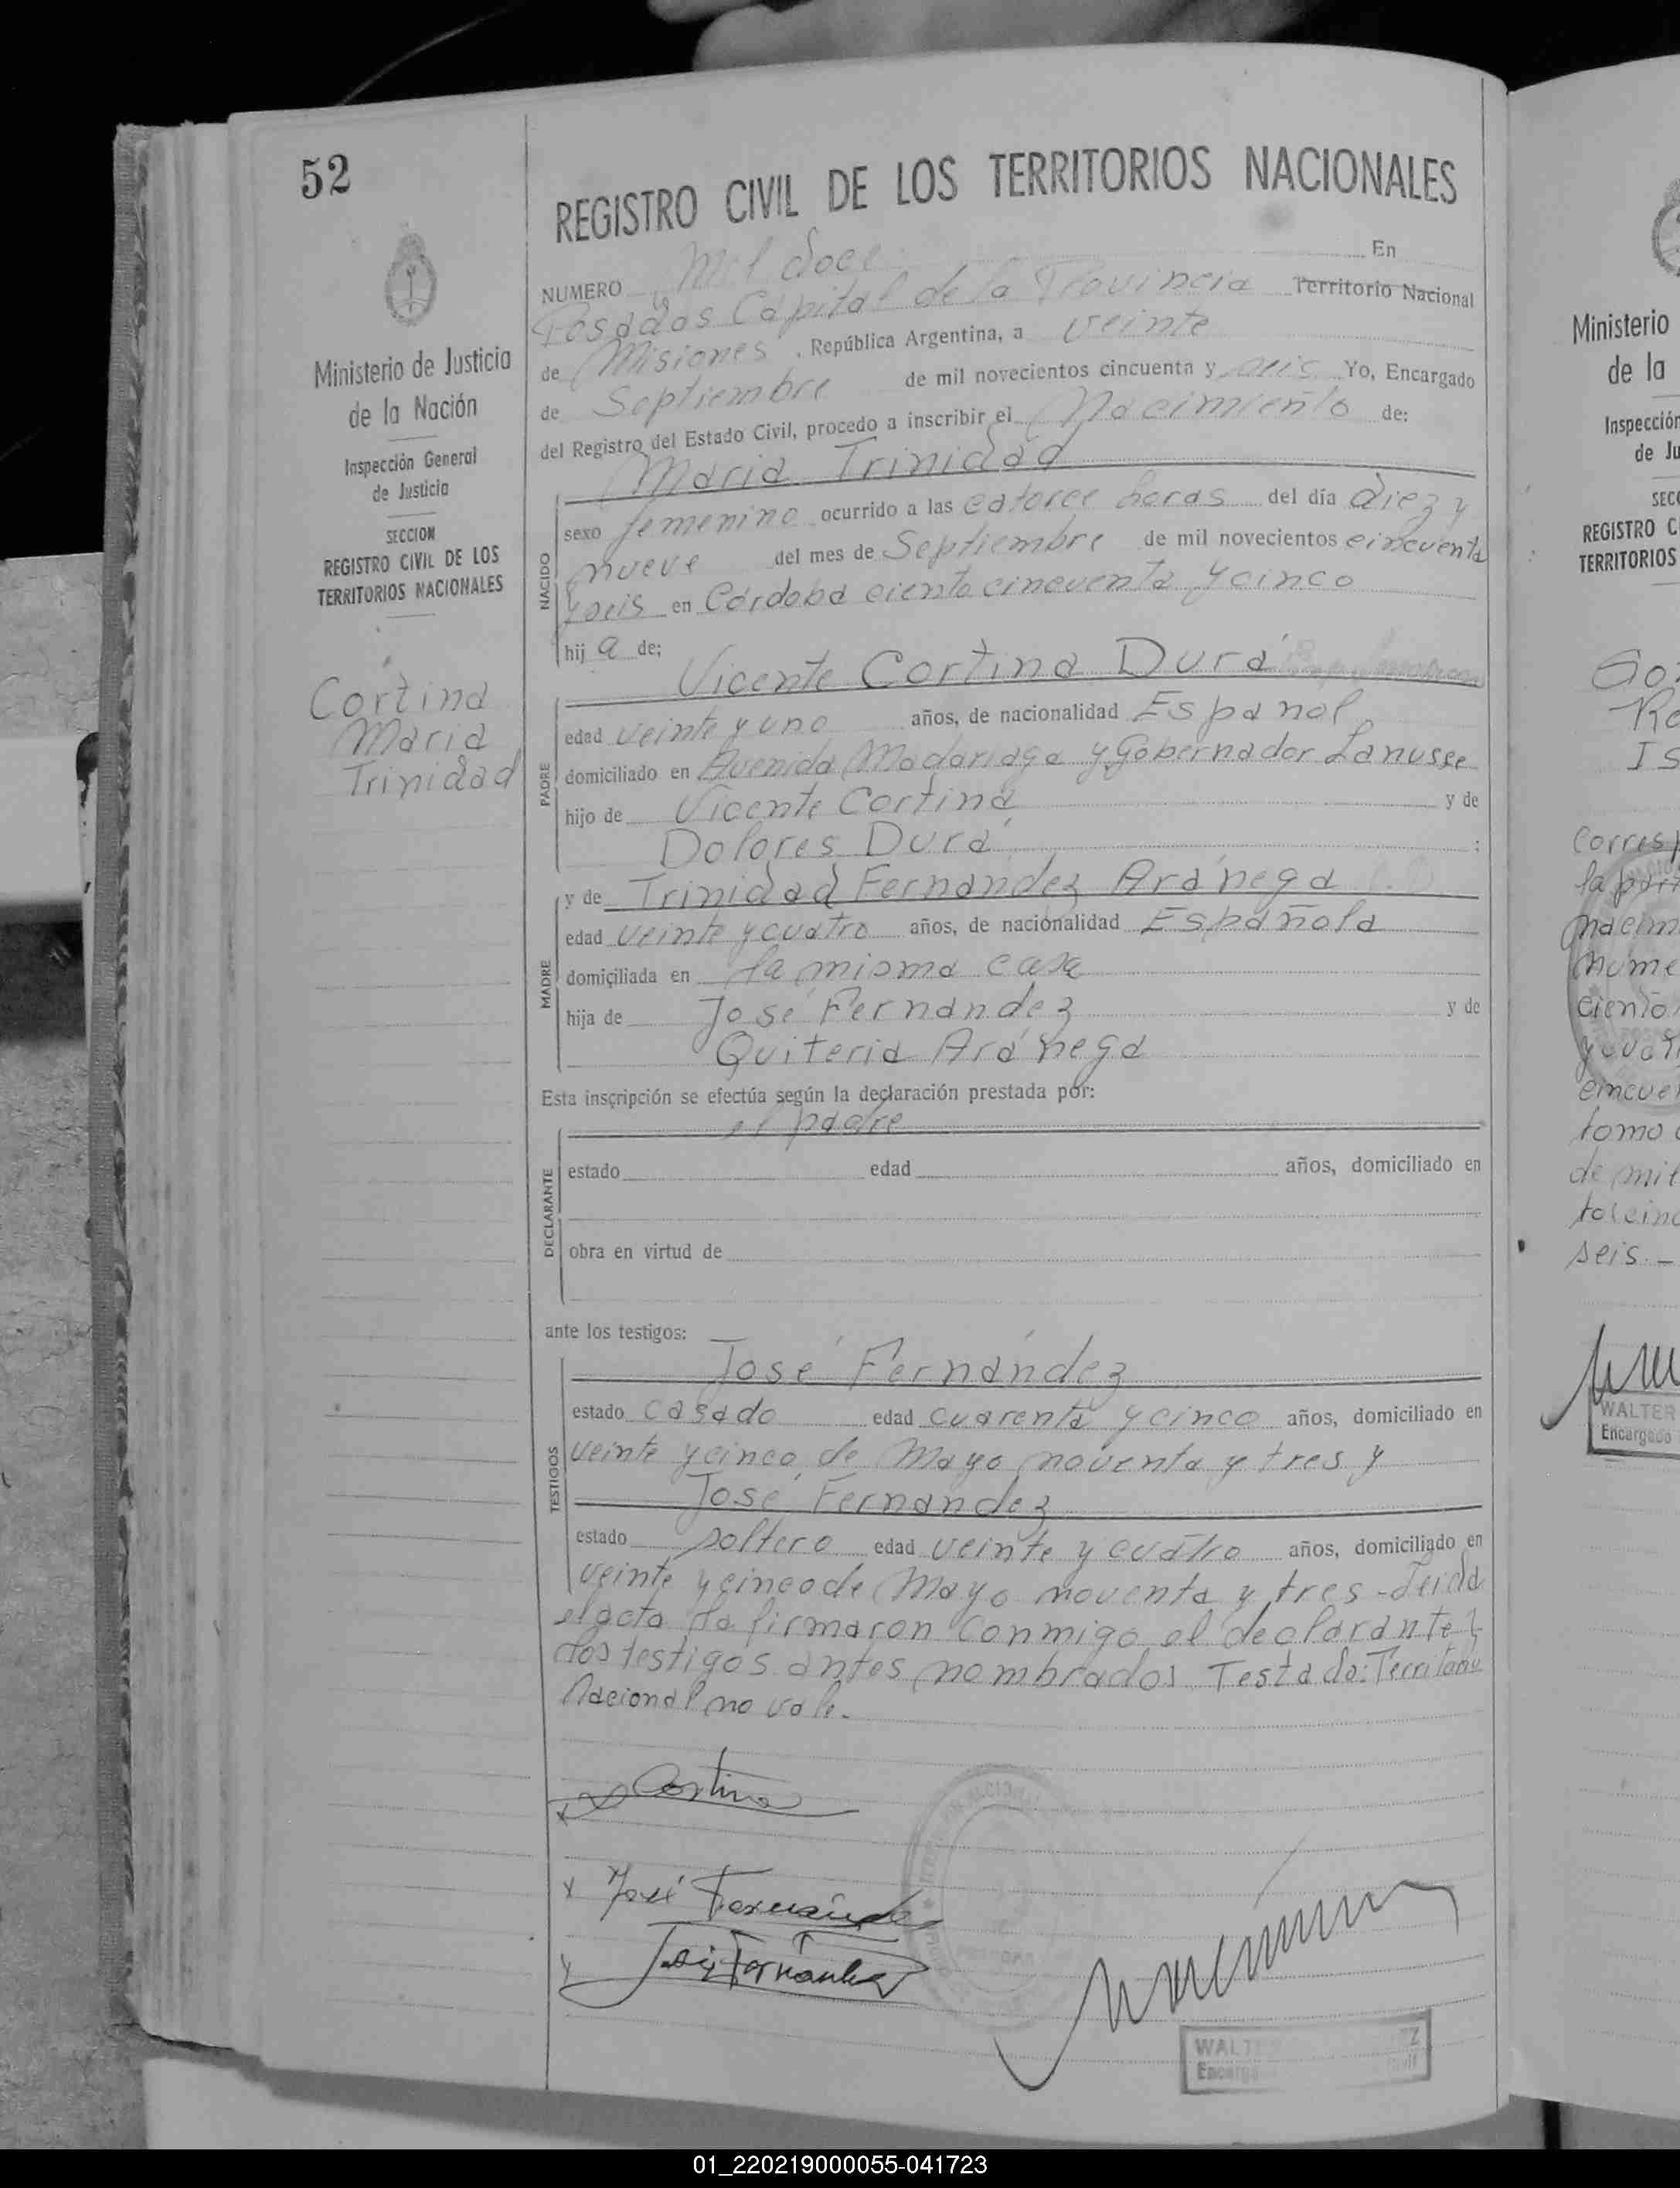 52
REGISTRO CIVIL DE LOS TERRITORIOS NACIONALES
Ministerio de Justicia
de la Nación
Inspección General
de Justicia
SECCION
REGISTRO CIVIL DE LOS
TERRITORIOS NACIONALES
Cortina
Maria
Trinidad
NUMERO Mil doce En
Posadas Capital de la Provincia Territorio Nacional
de Misiones, República Argentina, a veinte
de Septiembre de mil novecientos cincuenta y seis Yo, Encargado
del Registro del Estado Civil, procedo a inscribir el Nacimiento de:
Maria Trinidad
NACIDO
sexo femenino ocurrido a las catorce horas del día diez y
nueve del mes de Septiembre de mil novecientos cincuenta
y seis en Córdoba ciento cincuenta y cinco
hija de:
Vicente Cortina Durá
PADRE
edad veinte y uno años, de nacionalidad Español
domiciliado en Avenida Madariaga y Gobernador Lanusse
hijo de Vicente Cortina y de
Dolores Durá ;
y de Trinidad Fernández Aránega
MADRE
edad veinte y cuatro años, de nacionalidad Española
domiciliada en la misma casa
hija de José Fernández y de
Quiteria Aránega
Esta inscripción se efectúa según la declaración prestada por:
el padre
DECLARANTE
estado edad años, domiciliado en
obra en virtud de
ante los testigos:
José Fernández
TESTIGOS
estado casado edad cuarenta y cinco años, domiciliado en
veinte y cinco de Mayo noventa y tres y
José Fernández
estado soltero edad veinte y cuatro años, domiciliado en
veinte y cinco de Mayo noventa y tres - Leida
el acta la firmaron conmigo el declarante y
los testigos antes nombrados Testado: Territorio
Nacional no vale.
Cortina
José Fernández
José Fernández
WALTER
Encargado
Ministerio
de la
Inspección
de Ju
SECC
REGISTRO C
TERRITORIOS
Corresp
la part
nacim
núme
ciento
y cuat
cincue
tomo
de mil
tos cinc
seis.-
WALTER
Encargado
01_220219000055-041723